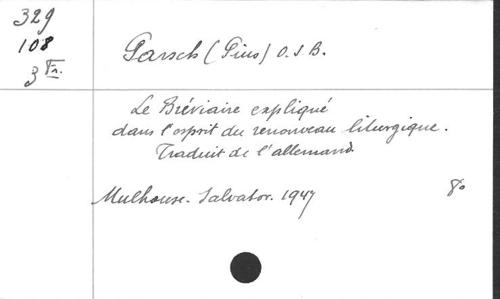 329
108
3 Ex.
Parsch (Pius) O.S.B.
Le Bréviaire expliqué
dans l'esprit du renouveau liturgique.
Traduit de l'allemand.
Mulhouse. Salvator. 1947
8o